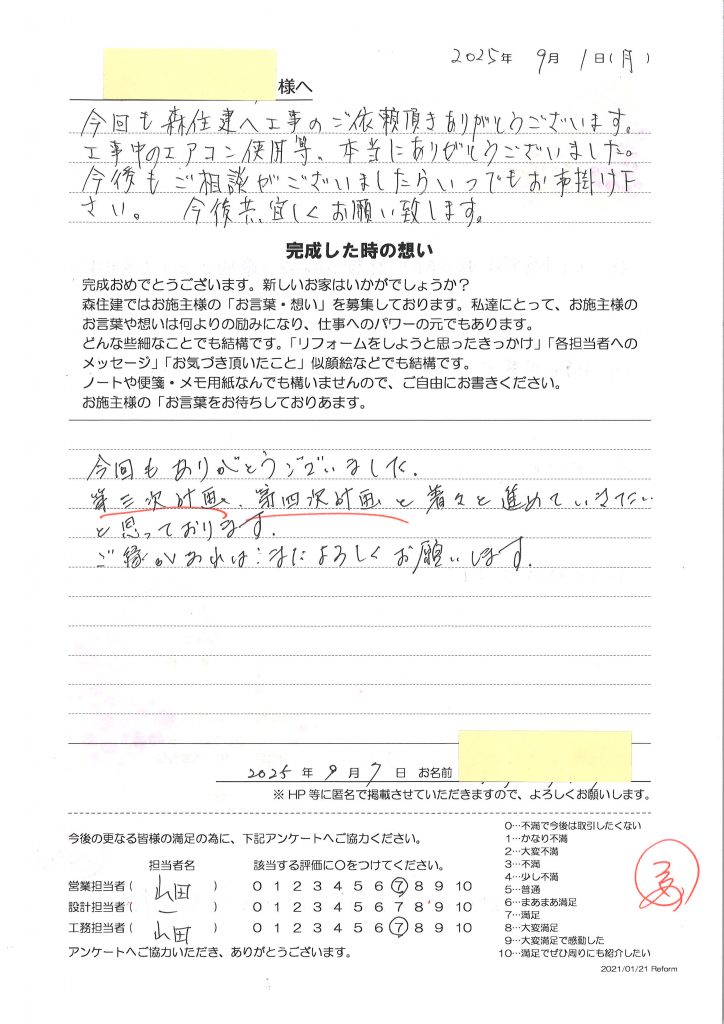 2025年 9月 1日(月)
様へ
今回も森住建へ工事のご依頼頂きありがとうございます。
工事中のエアコン使用等、本当にありがとうございました。
今後もご相談がございましたらいつでもお声掛け下
さい。 今後共、宜しくお願い致します。
完成した時の想い
完成おめでとうございます。新しいお家はいかがでしょうか?
森住建ではお施主様の「お言葉・想い」を募集しております。私達にとって、お施主様の
お言葉や想いは何よりの励みになり、仕事へのパワーの元でもあります。
どんな些細なことでも結構です。「リフォームをしようと思ったきっかけ」「各担当者への
メッセージ」「お気づき頂いたこと」似顔絵などでも結構です。
ノートや便箋・メモ用紙なんでも構いませんので、ご自由にお書きください。
お施主様の「お言葉をお待ちしておりあます。
今回もありがとうございました.
第三次計画、第四次計画と着々と進めていきたい
と思っております.
ご縁があればまたよろしくお願いします.
2025年 9月 7日 お名前
※HP等に匿名で掲載させていただきますので、よろしくお願いします。
今後の更なる皆様の満足の為に、下記アンケートへご協力ください。
担当者名 該当する評価に○をつけてください。
営業担当者( 山田 ) 0 1 2 3 4 5 6 7 8 9 10
設計担当者( ー ) 0 1 2 3 4 5 6 7 8 9 10
工務担当者( 山田 ) 0 1 2 3 4 5 6 7 8 9 10
アンケートへご協力いただき、ありがとうございます。
0…不満で今後は取引したくない
1…かなり不満
2…大変不満
3…不満
4…少し不満
5…普通
6…まあまあ満足
7…満足
8…大変満足
9…大変満足で感動した
10…満足でぜひ周りにも紹介したい
2021/01/21 Reform